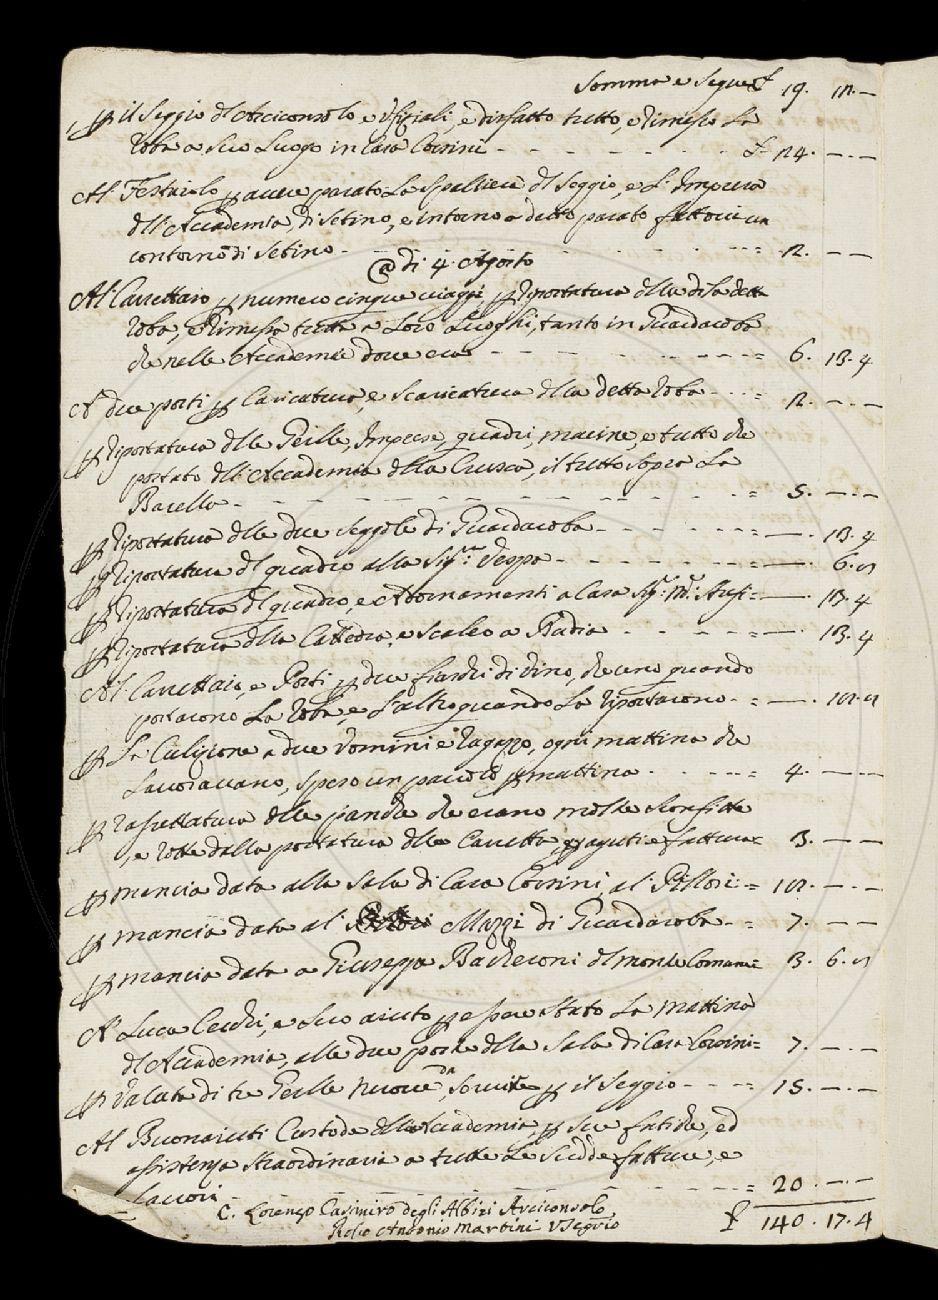 Somma e Segue £ 19. 10.—
p il Seggio dl Arciconsolo e Ufiziali, e disfatto tutto, e rimesso La
roba a suo Luogo in Casa Corsini - - - £ 24. —.—
Al Festaiolo p avere parato La Spalliera dl Seggio, e L'Impresa
dll'Accademia, di setino, e intorno a detto parato fattovi un
contorno di Setino - - - 2. —.—
@ di 4. Agosto
Al Carrettaio p numero cinque viaggi, p riportatura dlla di Sa detta
roba, e Rimessa tutta a Loro Luoghi, tanto in Guardaroba
che nelle Accademie dove era - - - 6. 13. 4
A due porti p Caricatura, e Scaricatura dlla detta roba - - - 2. —.—
p riportatura dlle Gerle, Imprese, quadri, macine, e tutto che
portato dll'Accademia dlla Crusca, il tutto sopra La
Barella - - - 5. —.—
p riportatura dlle due seggole di Guardaroba - - - —. 13. 4
p riportatura dl quadro alla Sig.ra Vespa - - - —. 6. 8
p riportatura dl quadro, e Adornamenti a Casa Sig.r M.se - - - —. 13. 4
p riportatura dlla Cattedra, e Scaleo a Badia - - - —. 13. 4
Al Carrettaio, e Porti p due fiaschi di vino, che uno quando
portarono La roba, e L'altro quando La riportarono - - - —.
p La Culizione a due Uomini e ragazzo, ogni mattina che
Lavoravano, speso un paolo p mattina - - - 4. —.—
p rassettatura dlle panche che erano molte sconfitte
, e rotte dalla portatura dlla Carretta p aguti e fattura 3. —.—
p mancia data alla Sala di Casa Corsini, al Pillori = 10. —.—
p mancia data al Mazzi di Guardaroba - - 7. —.—
p mancia data a Giuseppe Bacheroni dl monte Comune 3. 6. 8
A Luca Cecchi, e Suo aiuto p essere stato La mattina
dl'Accademia, alle due porte dlla Sala di Casa Corsini = 7. —.—
p Valuta di tre Gerle nuove da servire p il Seggio - - - 15. —.—
Al Buonaiuti Custode dlla Accademia, p sue fatiche, ed
assistenza straordinaria a tutte Le Sudde fatture, e
Lavori - - - 20. —.—
C. Lorenzo Casimiro degli Albizi Arciconsolo £ 140. 17. 4
Rosso Antonio Martini V. Segrio